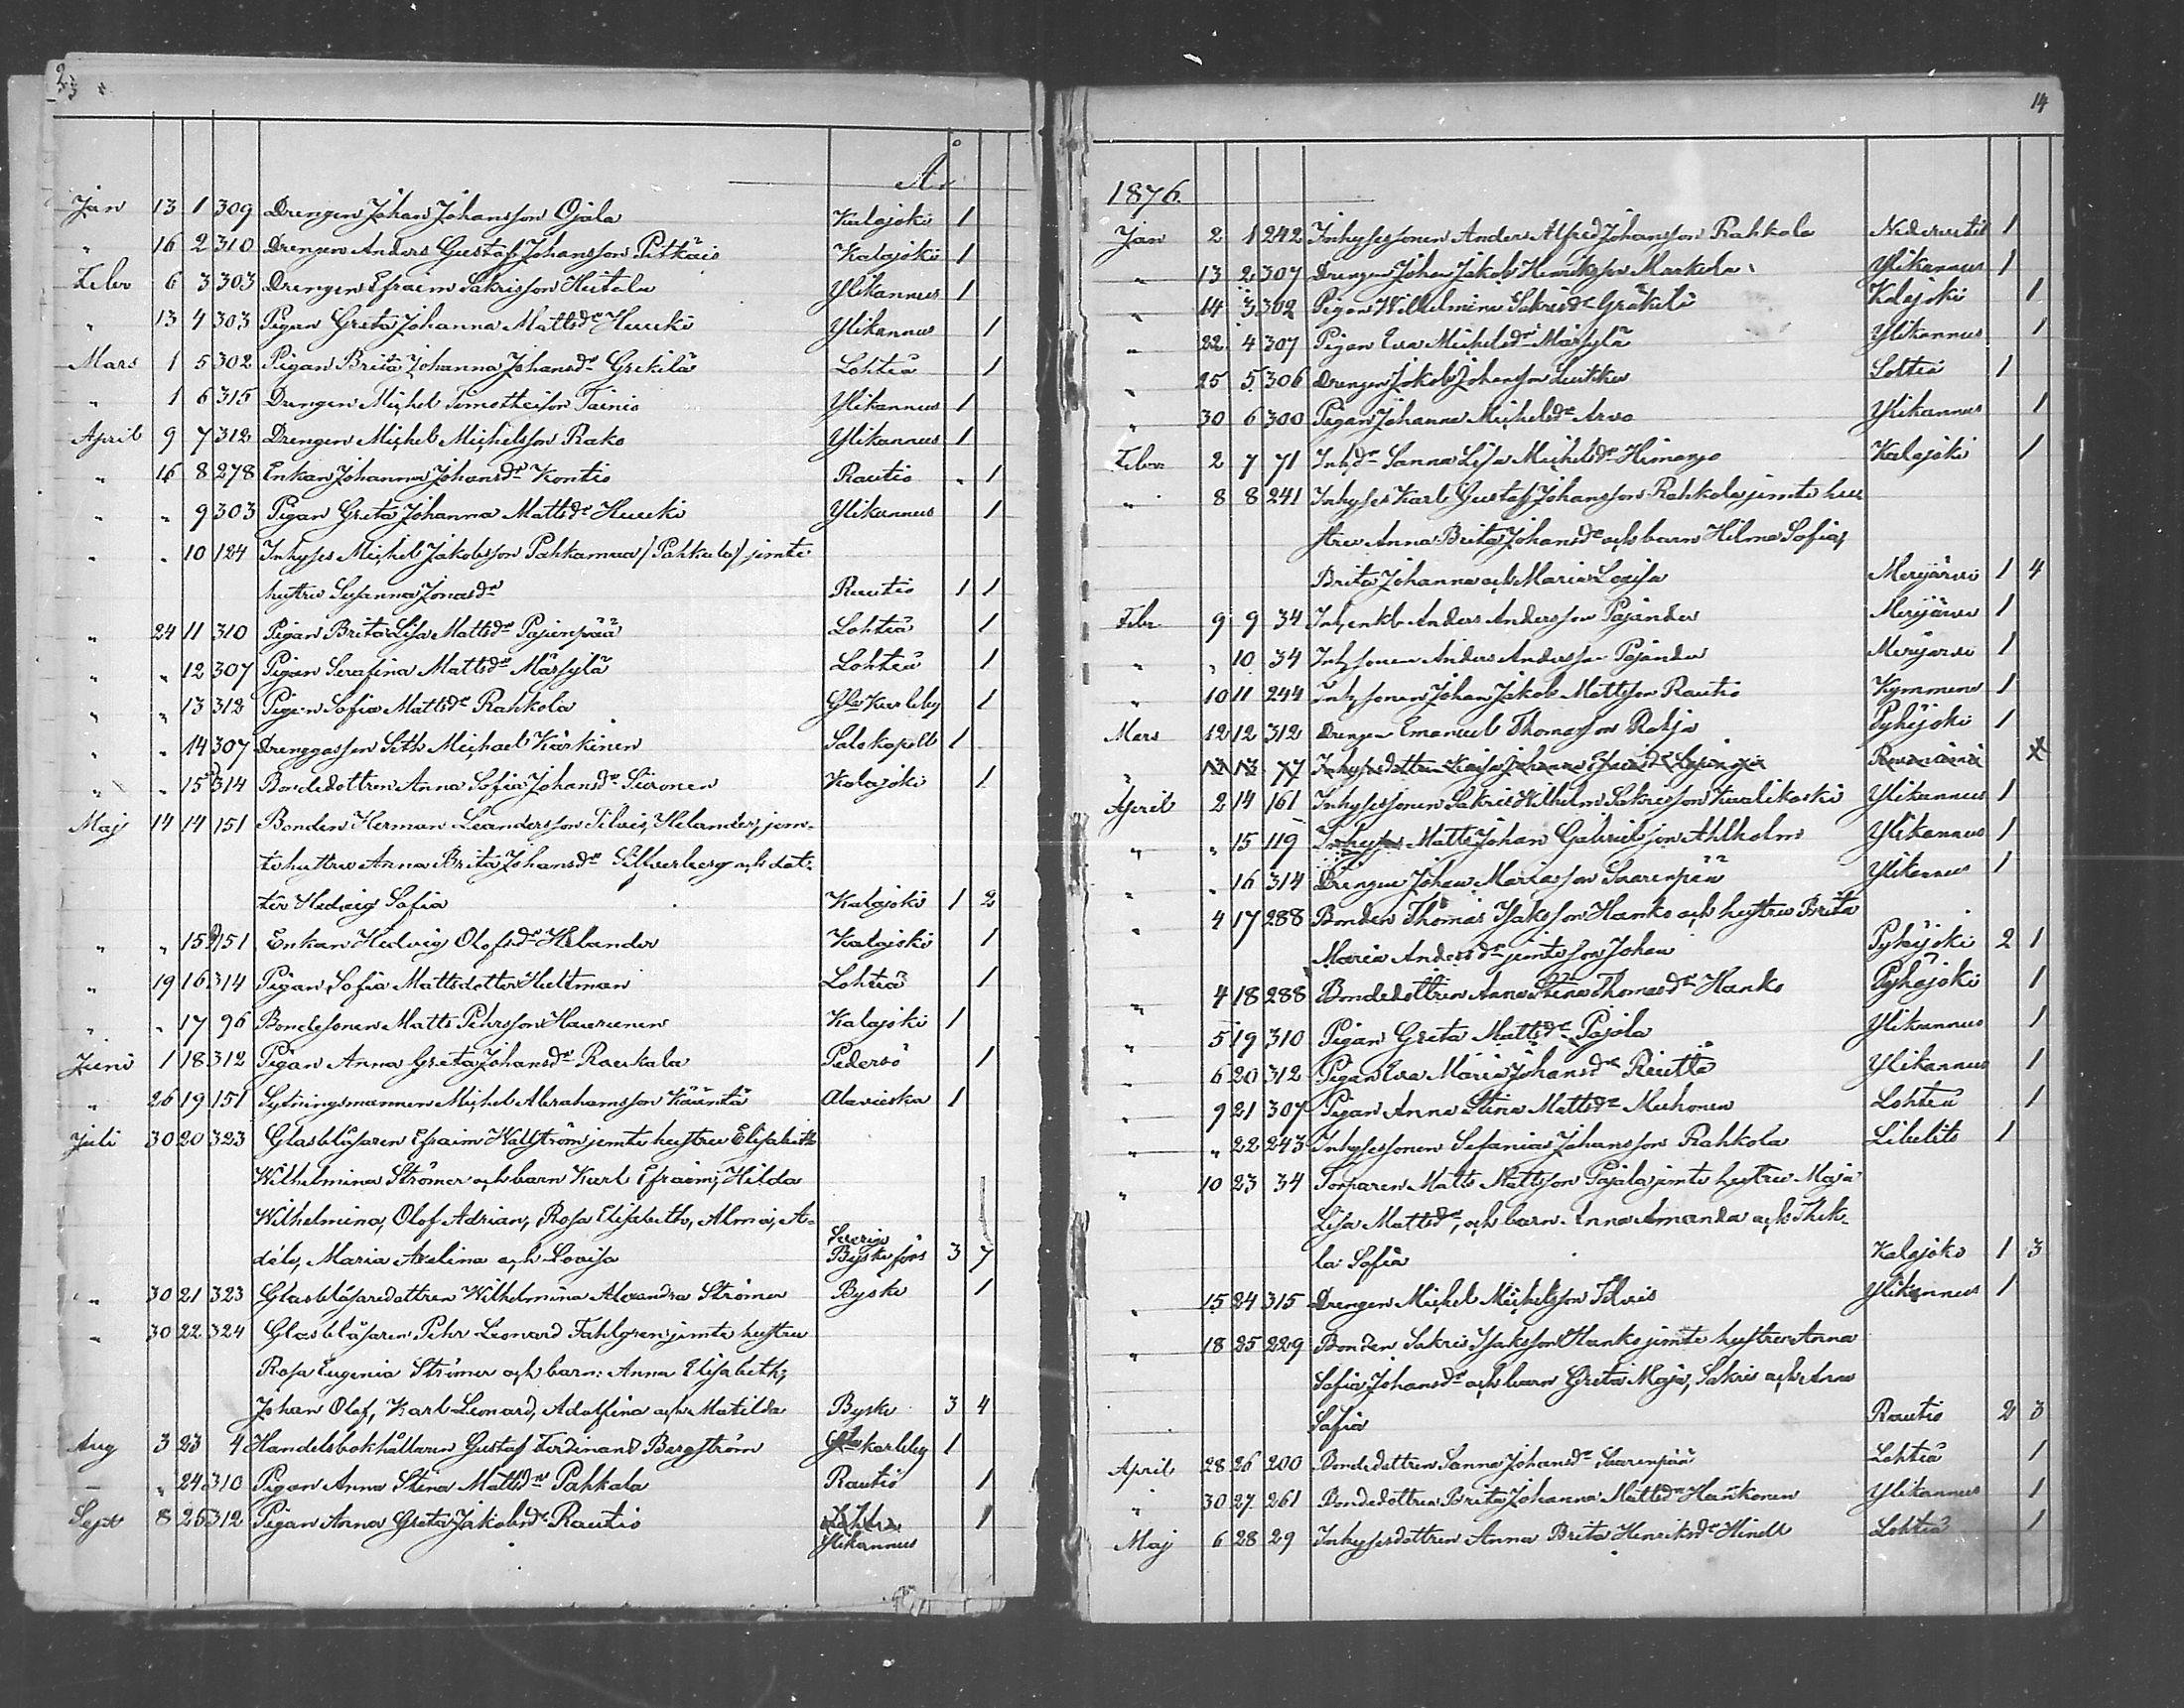 23
År
Jan 13 1 309 Drengen Johan Johansson Ojala Kalajoki 1
" 16 2 310 Drengen Anders Gustaf Johansson Pitkäis Kalajoki 1
Febr 6 3 303 Drengen Efraim Sakrisson Hietala Ylikannus 1
" 13 4 303 Pigan Greta Johanna Mattsdr Huuki Ylikannus 1
Mars 1 5 302 Pigan Brita Johanna Johansdr Grekilä Lohteå 1
" 1 6 315 Drengen Michel Timotheison Tainio Ylikannus 1
April 9 7 312 Drengen Michel Michelsson Rako Ylikannus 1
" 16 8 278 Enkan Johanna Johansdr Kontio Rautio " 1
" " 9 303 Pigan Greta Johanna Mattsdr Huuki Ylikannus 1
" " 10 124 Inhyses Michel Jakobsson Pahkamaa /Pahkala/ jemte
hustru Susanna Jonasdr Rautio 1 1
" 24 11 310 Pigan Brita Lisa Mattsdr Pajunpää Lohteå 1
" " 12 307 Pigan Serafina Mattsdr Mässylä Lohteå 1
" " 13 312 Pigan Sofia Mattsdr Rahkola Gla Karleby 1
" " 14 307 Drenggossen Seth Michael Kärkinen Salo kapell 1
" " 15 314 Bondedottren Anna Sofia Johansdr Siironen Kalajoki 1
Maj 14 14 151 Bonden Herman Leandersson Tilvis, Helander, jem-
te hustru Anna Brita Johansdr Silfverberg och dot-
ter Hedvig Sofia Kalajoki 1 2
" " 15 151 Enkan Hedvig Olofsdr Helander Kalajoki 1
" 19 16 314 Pigan Sofia Mattsdotter Hultman Lohteå 1
" " 17 96 Bondesonen Matts Pehrsson Haurunen Kalajoki 1
Juni 1 18 312 Pigan Anna Greta Johansdr Raukala Pedersö 1
" 26 19 151 Sytningsmannen Michel Abrahamsson Kääntä Alavieska 1
Juli 30 20 323 Glasblåsaren Efraim Hallström jemte hustru Elisabeth
Wilhelmina Strömer och barn Karl Efraim, Hilda
Wilhelmina, Olof Adrian, Rosa Elisabeth, Alma, A-
dele, Maria Avelina och Lovisa Sverige Byske fors 3 7
" 30 21 323 Glasblåsaredottren Wilhelmina Alexandra Strömer Byske 1
" 30 22 324 Glasblåsaren Pehr Leonard Fahlgren jemte hustru
Rosa Eugenia Strömer och barn: Anna Elisabeth,
Johan Olof, Karl Leonard, Adolfina och Matilda Byske 3 4
Aug 3 23 4 Handelsbokhållaren Gustaf Ferdinand Bergström Gla karleby 1
— " 24 310 Pigan Anna Stina Mattsdr Pahkala Rautio 1
Sept 8 25 312 Pigan Anna Greta Jakobsdr Rautio Lohteå 1
Ylikannus
14
1876.
Jan 2 1 242 Inhysessonen Anders Alfred Johansson Rahkola Nedervetil 1
" 13 2 307 Drengen Johan Jakob Henriksson Markula Ylikannus 1
" 14 3 302 Pigan Wilhelmina Sakrisdr Gräkilä Kalajoki 1
" 22 4 307 Pigan Eva Michelsdr Mässylä Ylikannus 1
" 25 5 306 Drengen Jakob Johansson Luukku Lohteå 1
" 30 6 300 Pigan Johanna Michelsdr Arvo Ylikannus 1
Febr 2 7 71 Inhdr Sanna Lisa Michelsdr Himango Kalajoki 1
" 8 8 241 Inhyses Karl Gustaf Johansson Rahkola jemte hu-
stru Anna Brita Johansdr och barn Hilma Sofia,
Brita Johanna och Maria Lovisa Merijärvi 1 4
Febr 9 9 34 Inh,enkl. Anders Andersson Pajander Merijärvi 1
" " 10 34 Inhsonen Anders Andersson Pajander Merijärvi 1
" 10 11 244 Inhsonen Johan Jakob Mattsson Rautio Kymmene 1
Mars 12 12 312 Drengen Emanuel Thomasson Rahja Pyhäjoki 1
" 13 13 77 Inhysesdottren Kaisa Johanna
April 2 14 161 Inhysessonen Sakris Wilhelm Sakrisson Kuulikoski Ylikannus 1
" " 15 119 Inhyses Matts Johan Gabrielsson Ahlholm Ylikannus 1
" " 16 314 Drengen Johan Mariasson Saarenpää Ylikannus 1
" 4 17 288 Bonden Thomas Isaksson Hanko och hustru Brita
Maria Andersdr jemte son Johan Pyhäjoki 2 1
" 4 18 288 Bondedottren Anna Stina Thomasdr Hanko Pyhäjoki 1
" 5 19 310 Pigan Greta Mattsdr Pajala Ylikannus 1
" 6 20 312 Pigan Eva Maria Johansdr Riutta Ylikannus 1
" 9 21 307 Pigan Anna Stina Mattsdr Muhonen Lohteå 1
" " 22 243 Inhysessonen Sefanias Johansson Rahkola Libelits 1
" 10 23 34 Torparen Matts Mattsson Pajala jemte hustru Maja
Lisa Mattsdr, och barn Anna Amanda och Thek-
la Sofia Kalajoki 1 3
" 15 24 315 Drengen Michel Michelsson Tilvis Ylikannus 1
" 18 25 229 Bonden Sakris Isaksson Hanko jemte hustru Anna
Sofia Johansdr och barn Greta Maja, Sakris och Anna
Sofia Rautio 2 3
April 28 26 200 Bondedottren Sanna Johansdr Saarenpää Lohteå 1
" 30 27 261 Bondedottren Brita Johanna Mattsdr Hankonen Ylikannus 1
Maj 6 28 29 Inhysesdottren Anna Brita Henriksdr Hindi Lohteå 1